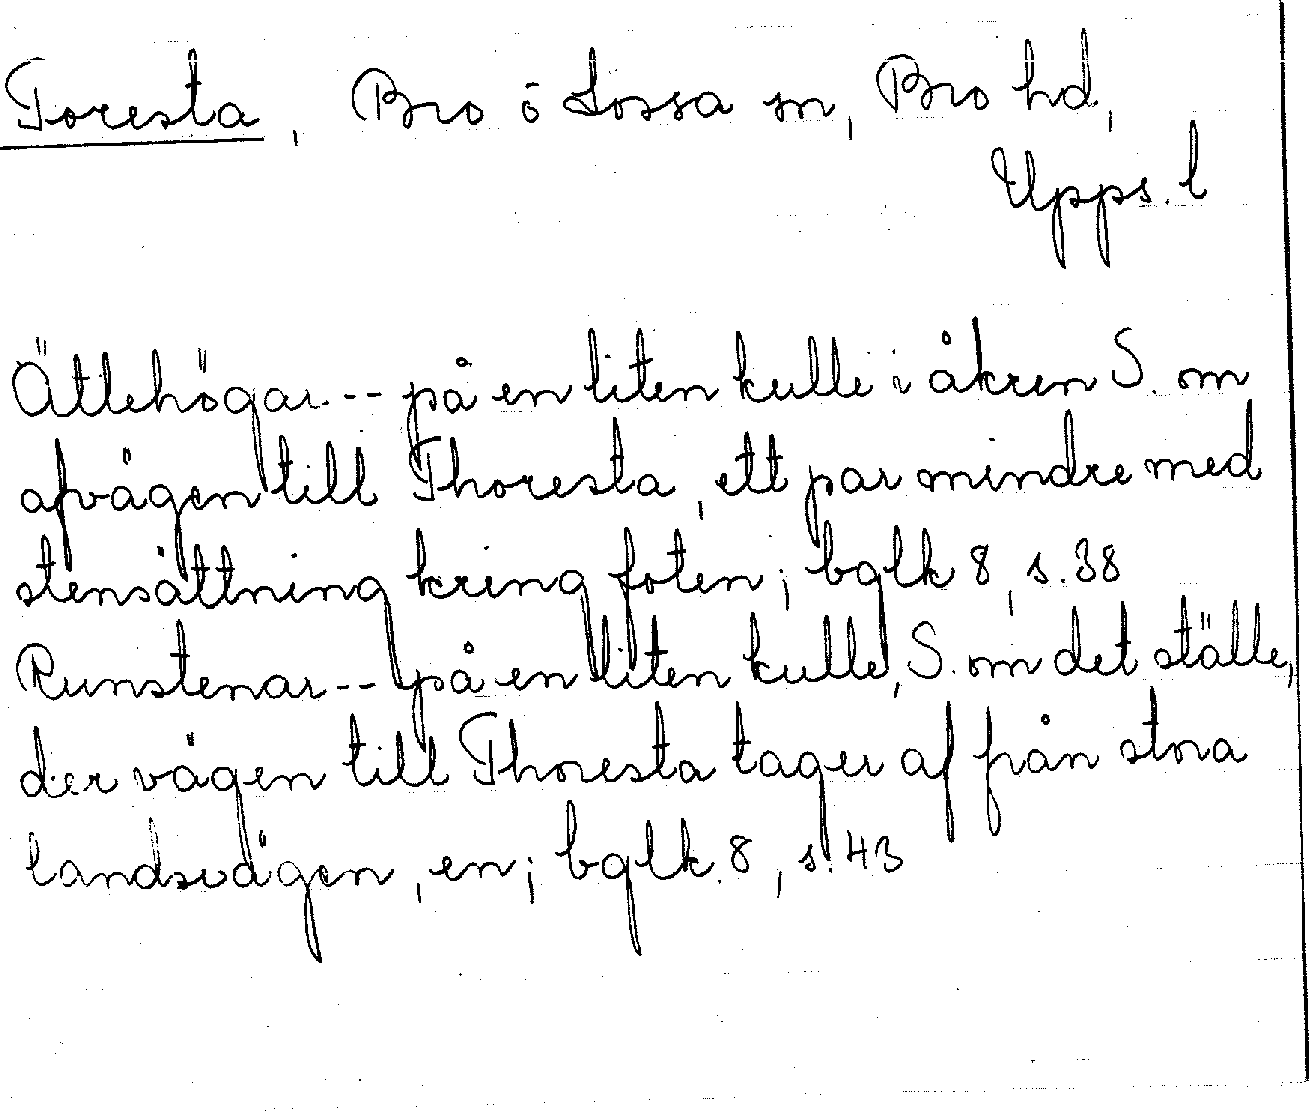 Toresta, Bro ö Lossa sn, Bro hd,
Upps. l
Ättehögar -- på en liten kulle i åkren S. om
afvägen till Thoresta, ett par mindre med
stensättning kring foten; bglk 8, s. 38
Runstenar -- på en liten kulle, S. om det ställe,
der vägen till Thoresta tager af från stora
landsvägen, en; bglk. 8, s. 43